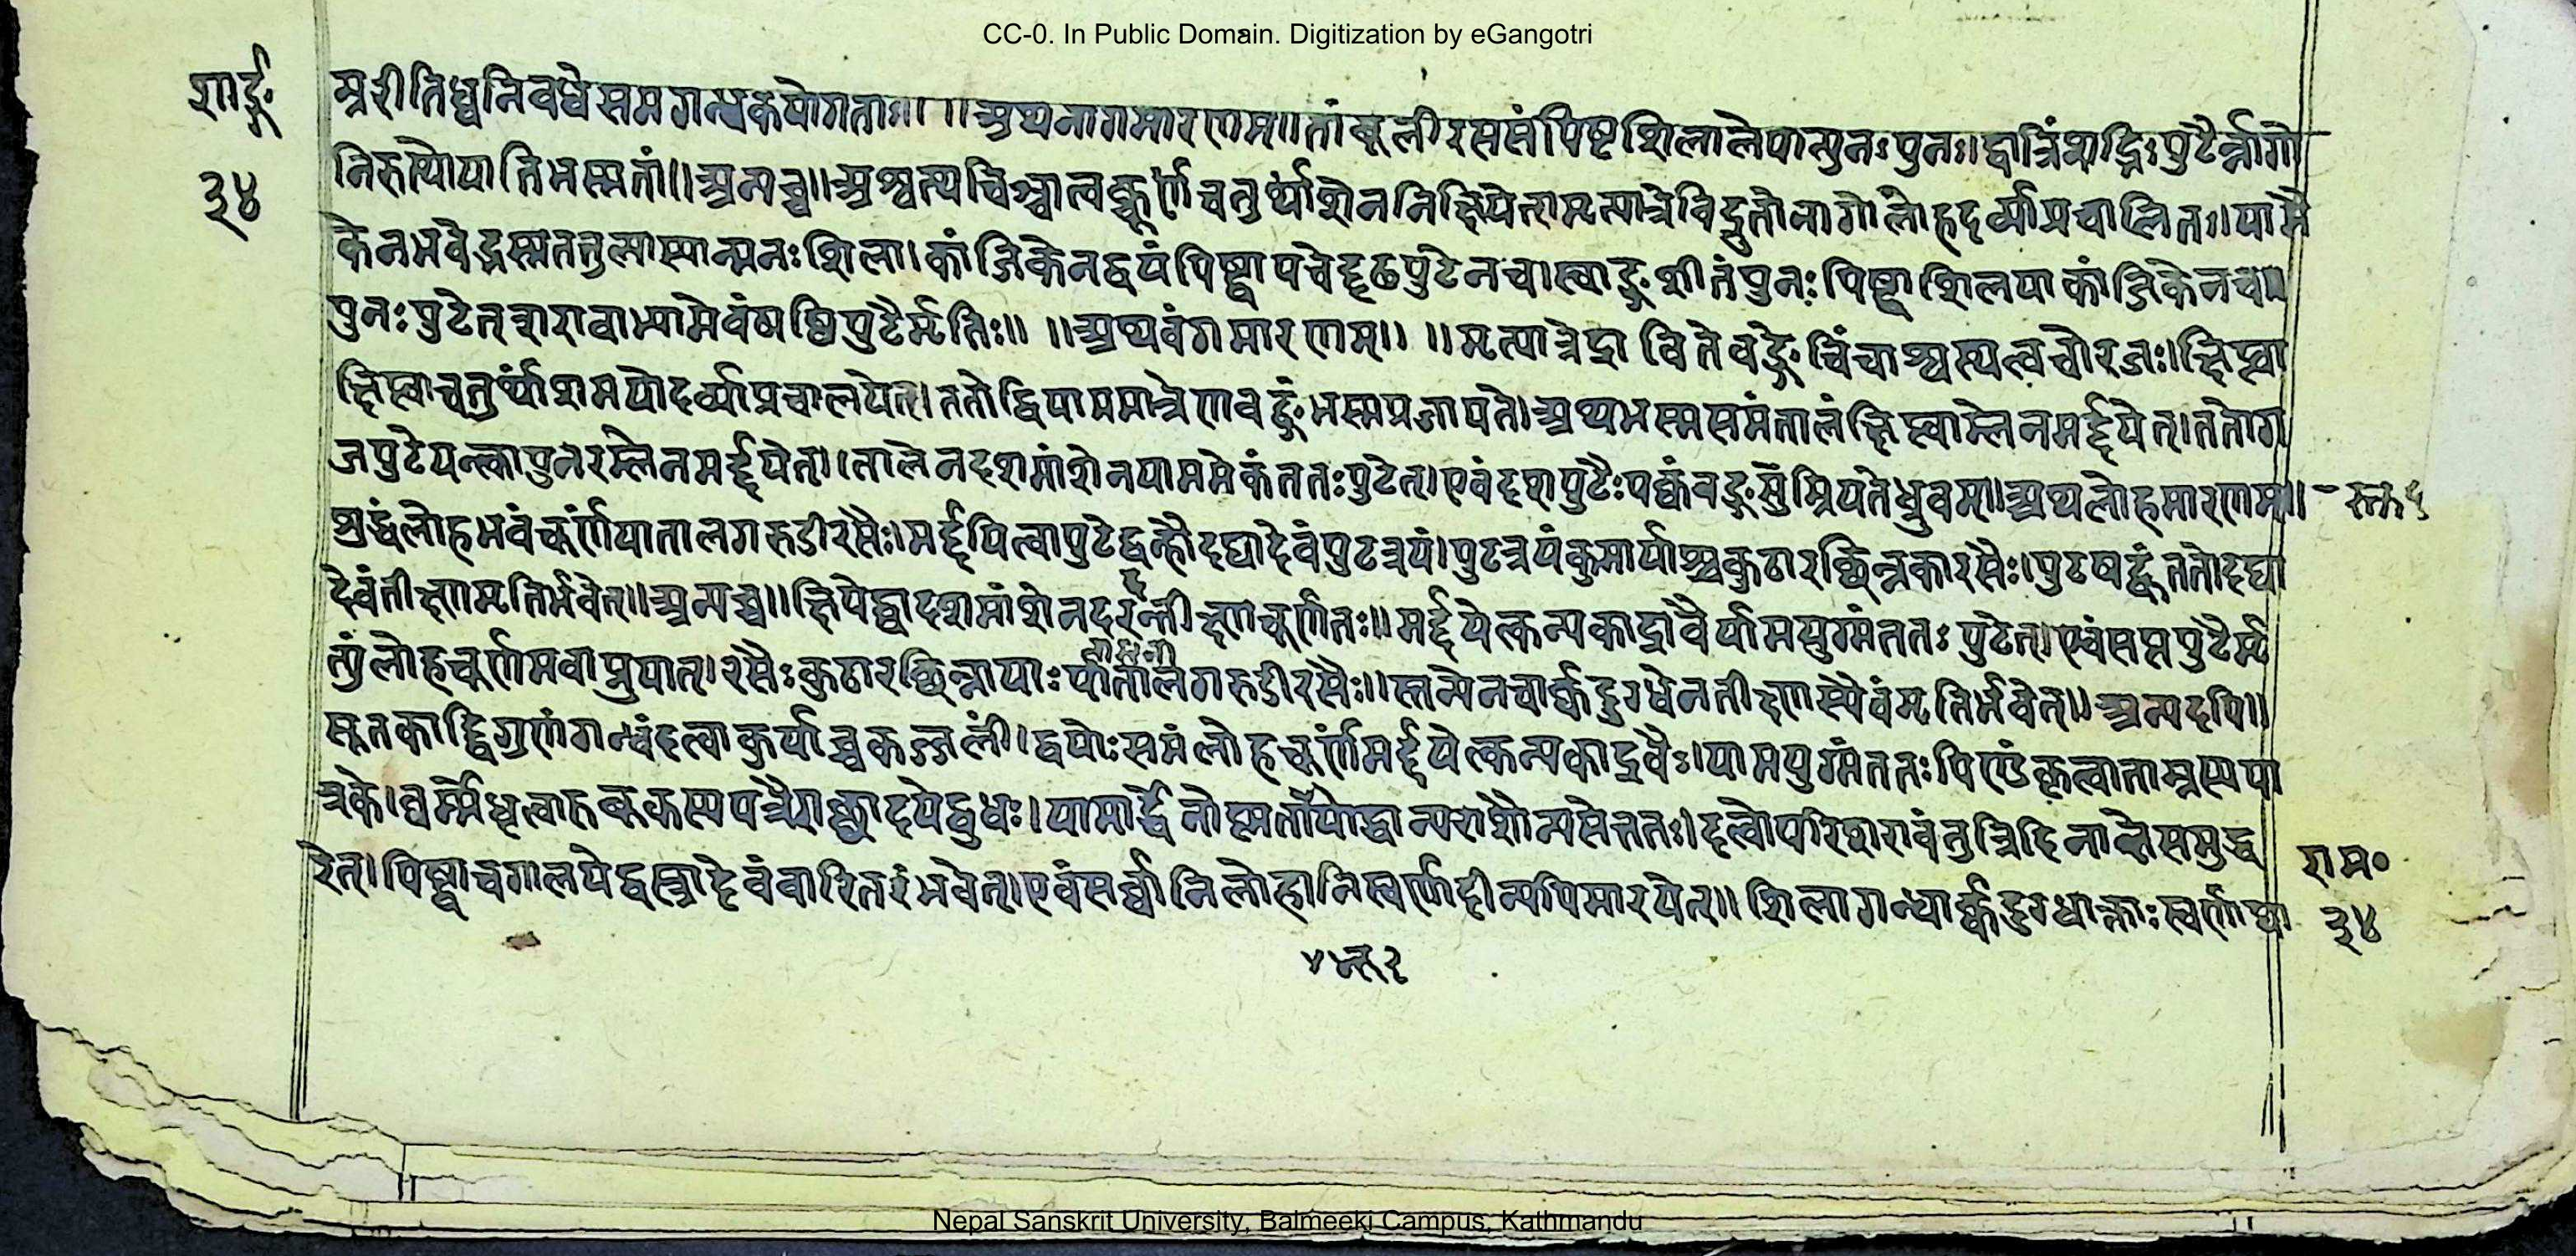 CC-0. In Public Domain. Digitization by eGangotri
शार्ङ्ग
३४
म्ररीतिध्वनिवधे समगन्धकयोगतः॥ ॥अथ नागमारणम्॥ तांबूलीरससंपिष्टशिलालेपात्पुनः पुनः। द्वात्रिंशद्भिः पुटैर्न्नागो
निरुत्थो याति भस्मतां॥ अन्यच्च॥ अश्वत्थचिञ्चात्वक्चूर्णं चतुर्थांशेन निक्षिपेत्। मृत्पात्रे विद्रुतो नागो लोहदर्व्या प्रचालितः। यामै
केन भवेद्भस्म तत्तुल्या स्यान्मनःशिला। कांजिकेन द्वयं पिष्ट्वा पचेद्दृढपुटेन च। स्वाङ्गशीतं पुनः पिष्ट्वा शिलया कांजिकेन च॥
पुनः पुटेत् शरावाभ्यामेवं षष्टिपुटैर्मृतिः॥ ॥अथ वंगमारणम्॥ ॥मृत्पात्रे द्राविते वङ्गे चिंचाश्वत्थत्वचो रजः। क्षिप्त्वा
क्षिप्त्वा चतुर्थांशमयोदर्व्या प्रचालयेत्। ततो द्वियाममात्रेण वङ्गं भस्म प्रजायते। अथ भस्मसमं तालं क्षिप्त्वाम्लेन मर्द्दयेत्। ततो ग
जपुटे पक्त्वा पुनरम्लेन मर्द्दयेत्। तालेन दशमांशेन याममेकं ततः पुटेत्। एवं दशपुटैः पक्वं वङ्गस्तु म्रियते ध्रुवम्॥ अथ लोहमारणम्॥
शुद्धं लोहभवं चूर्णं पातालगरुडीरसैः। मर्द्दयित्वा पुटेद्वह्नौ दद्यादेवं पुटत्रयं। पुटत्रयं कुमार्याश्च कुठारछिन्नकारसैः। पुटषट्कं ततो दद्या
देवं तीक्ष्णमृतिर्भवेत्॥ अन्यच्च॥ क्षिपेद्द्वादशमांशेन दरदं तीक्ष्णचूर्णतः॥ मर्द्दयेत्कन्यकाद्रावैर्यामयुग्मं ततः पुटेत्। एवं सप्तपुटैर्मृ
त्युं लोहचूर्णमवाप्नुयात्। रसैः कुठारछिन्नायाः पातालगरुडीरसैः॥ स्तन्येन चार्कदुग्धेन तीक्ष्णस्यैवं मृतिर्भवेत्॥ अन्यदपि॥
सूतकाद्द्विगुणं गन्धं दत्वा कुर्याच्च कज्जलीं। द्वयोः समं लोहचूर्णं मर्द्दयेत्कन्यकाद्रवैः। यामयुग्मं ततः पिण्डं कृत्वा ताम्रस्य पा
त्रके। घर्म्मे धृत्वा रुबूकस्य पत्रैराछादयेद्बुधः। यामार्द्धेनोष्णता भूयाद्धान्यराशौ न्यसेत्ततः। दत्वोपरि शरावं तु त्रिदिनान्ते समुद्ध
रेत्। पिष्ट्वा च गालयेद्वस्त्रादेवं वारितरं भवेत्। एवं सर्वाणि लोहानि स्वर्णादीन्यपि मारयेत्॥ शिलागन्धार्कदुग्धाक्ताः स्वर्णाद्या
राम०
३४
Nepal Sanskrit University, Balmeeki Campus, Kathmandu